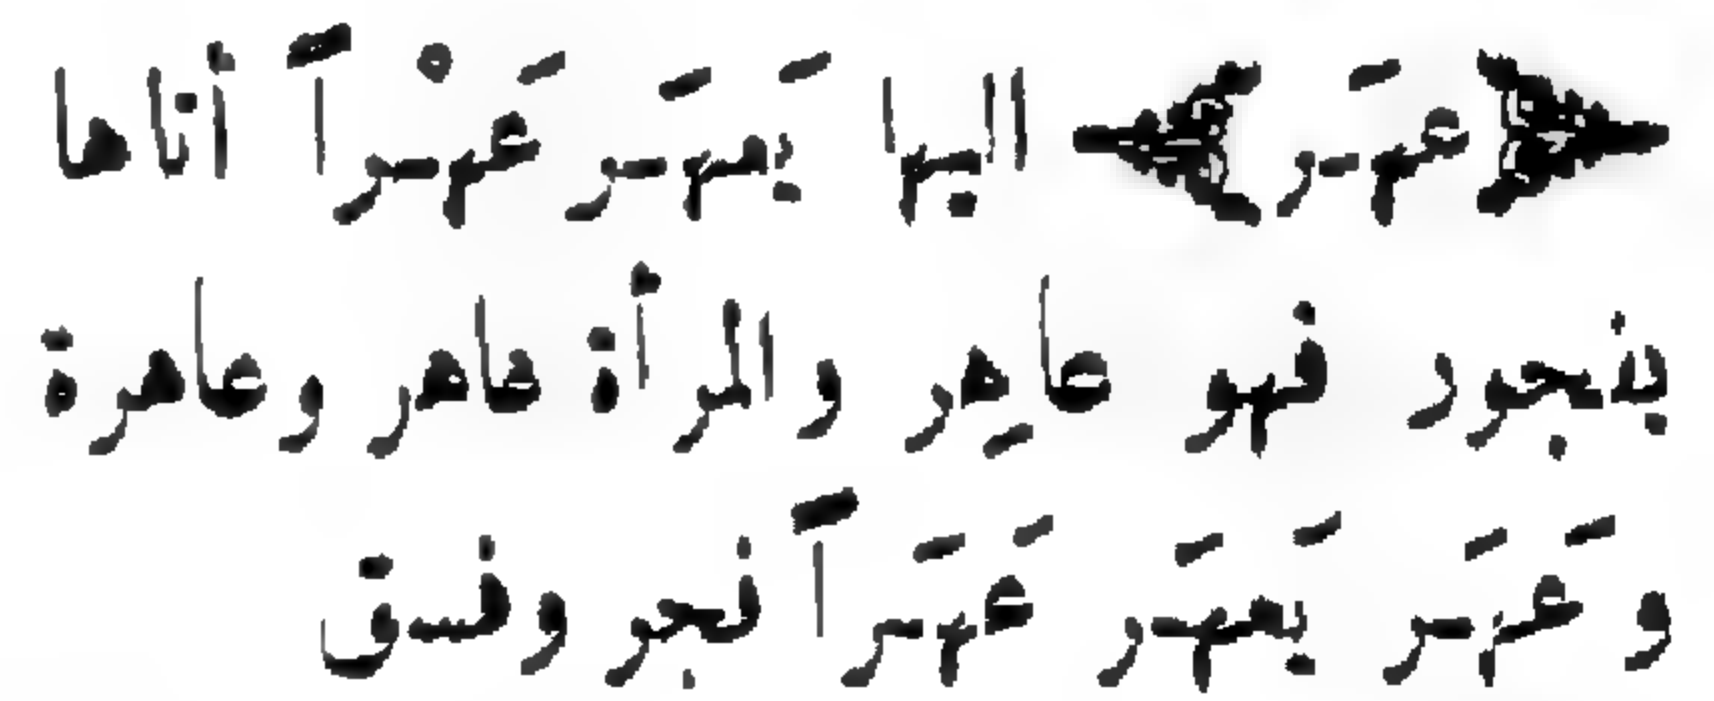 ﴿عَهَر﴾ اليها يَعهَر عَهْراً أتاها
بفجور فهو عاهِر والمرأة عاهر وعاهرة
وعَهَر يَعهَر عَهَراً فجر وفسق